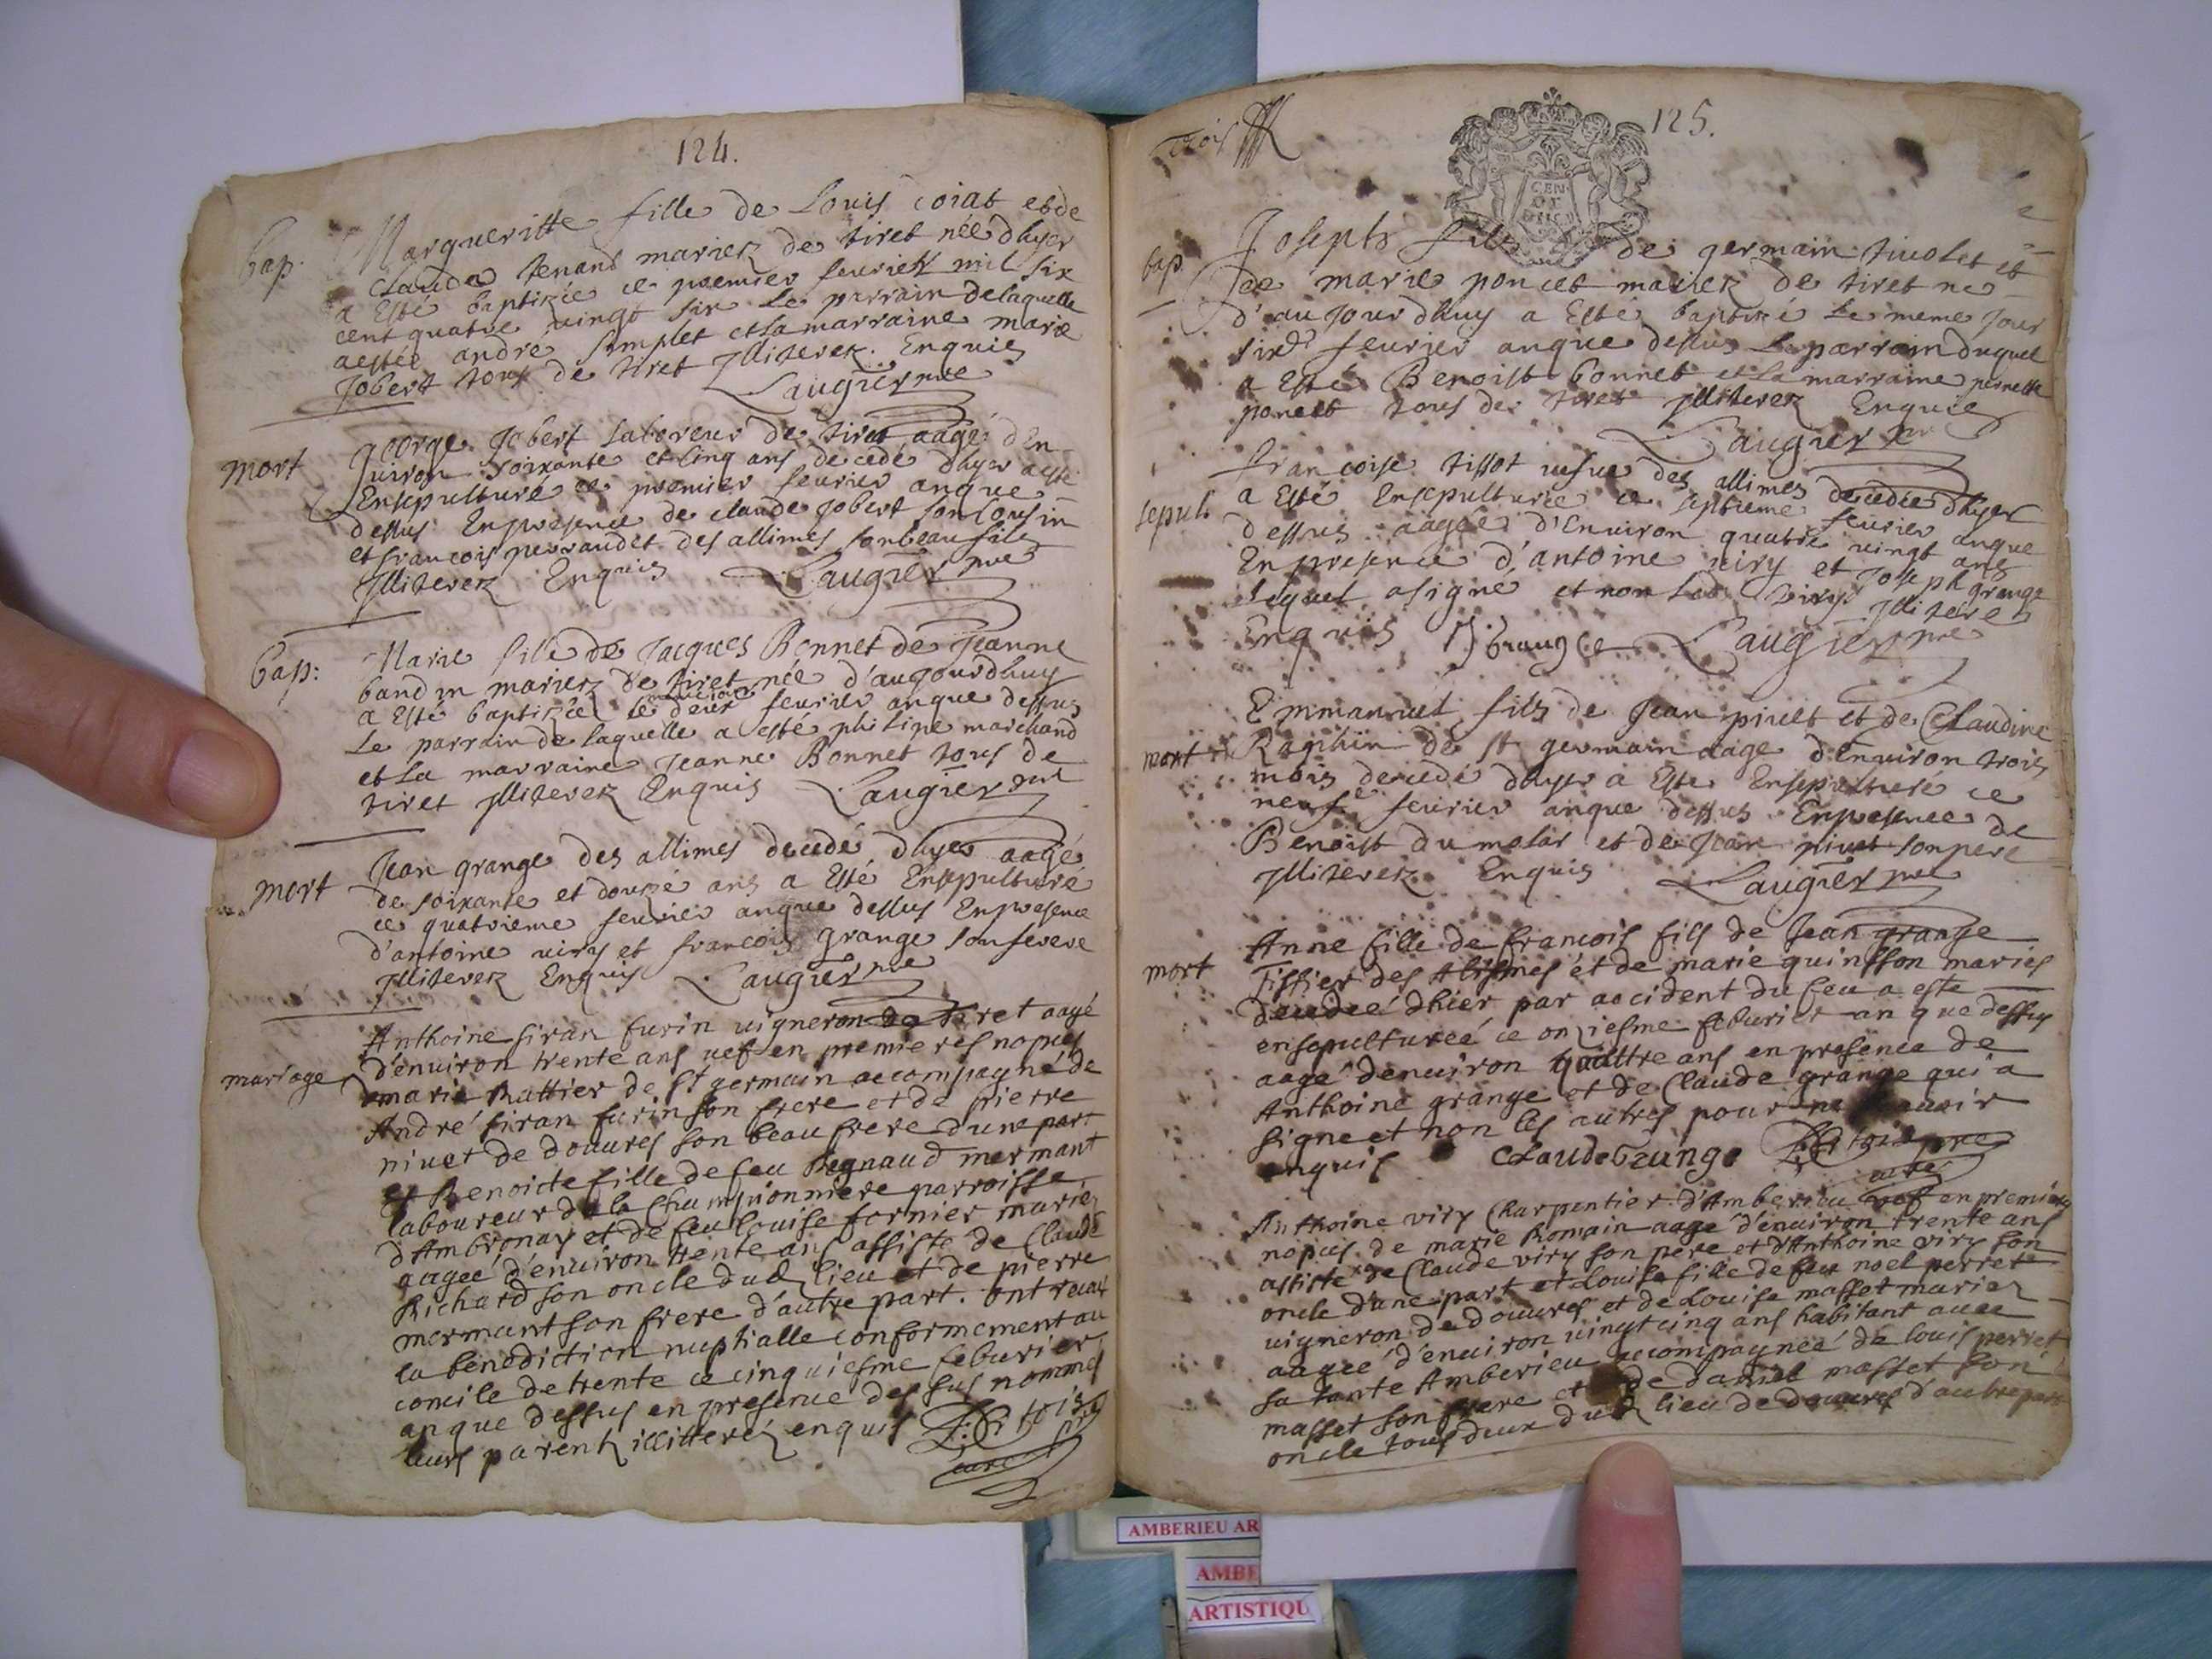 124.
bap. Margueritte fille de Louis coiat et de
Clauda tenand mariez de tiret née dhyer
a Esté baptizée ce premier feurier mil six
cent quatre vingt six le parrain de laquelle
aestée andré simplet et la marraine marie
Jobert tous de tiret Illiterez. Enquis
Laugier pre
mort George Jobert laboreur de tiret aagé d'en
uiron soixante et cinq ans decedé dhyer a esté
Ensepulturé ce premier feurier anque
dessus Enpresence de claude Jobert son cousin
et francois perraudet des allimes son beaufils
Illiterez Enquis Laugier pre
bap: Marie fille de Jacques Bonnet de Jeanne
baudin mariez de tiret née d'aujourdhuy
a Esté baptizée le deux feurier anque dessus
Le parrain de laquelle a esté philipe marchand
et La marraine Jeanne Bonnet tous de
tiret Illiterez Enquis Laugier pre
mort Jean grange des allimes decedé dhyer aagé
de soixante et douze ans a Esté Ensepulturé
ce quatrieme feurier anque dessus Enpresence
d'antoine viry et francois grange son frere
Illiterez Enquis Laugier pre
Anthoine siran furin vigneron de tiret aagé
mariage d'enuiron trente ans vef en premieres nopces
marie Rattier de St germain accompagné de
André siran furin son frere et de pierre
niuet de douures son beau frere dune part
et Benoicte fille de feu Regnaud mermant
laboureur de la Championniere parroisse
d'Ambronay et de feu Louise fornier mariez
aagée d'enuiron trente ans assiste de Claude
Richard son oncle dud lieu et de pierre
mermant son frere d'autre part. ont receu
la benediction nuptialle conformement au
concile de trente ce cinquiesme feburier
an que dessus en presence des sus nommes
leurs parentz illitterez enquis
curé
trois
125.
GEN
bap Joseph fils de germain tiuolet et
de marie poncet mariez de tiret ne
d'aujourdhuy a Esté baptizé Le meme Jour
six.e feurier anque dessus Le parrain duquel
a Esté Benoist bonnet et la marraine pernette
poncet tous de tiret Illiterez Enquis
Laugier pre
francoise tissot vefue des allimes decedée dhyer
sepult. a Esté Ensepulturée ce septieme feurier anque
dessus aagée d'Enuiron quatre vingt ans
En presence d'antoine viry et Joseph grange
lequel a signé et non led viry Illiteré
Enquis J grange Laugier pre
Emmanuel fils de Jean piuet et de Claudine
mort Raphin de St germain aage d'enuiron trois
mois decedé dhyer a Esté Ensepulturé ce
neuf.e feurier anque dessus Enpresence de
Benoist dumolar et de Jean piuet son pere
Illiterez Enquis Laugier pre
Anne fille de francois fils de Jean grange
mort Tissier des Alismes et de marie quinsson mariés
decedeé d'hier par accident du feu a este
ensepultureé ce onziesme feburier an que dessus
aage denuiron quattre ans en presence de
Anthoine grange et de Claude grange qui a
signe et non les autres pour ne scauoir
enquis Claude Grange
curé
Anthoine viry Charpentier d'Amberieu vef en premieres
nopces de marie Romain aage d'enuiron trente ans
assiste de Claude viry son pere et d'Anthoine viry son
oncle d'une part et Louise fille de feu noel perret
vigneron de douures et de Louise masset mariez
aagée d'enuiron vingt cinq ans habitant auec
sa tante Amberieu accompagneé de louis perret
masset son frere et de daniel masset son
oncle tous deux dud lieu de douures d'autre part
AMBERIEU AR
AMBE
ARTISTIQU